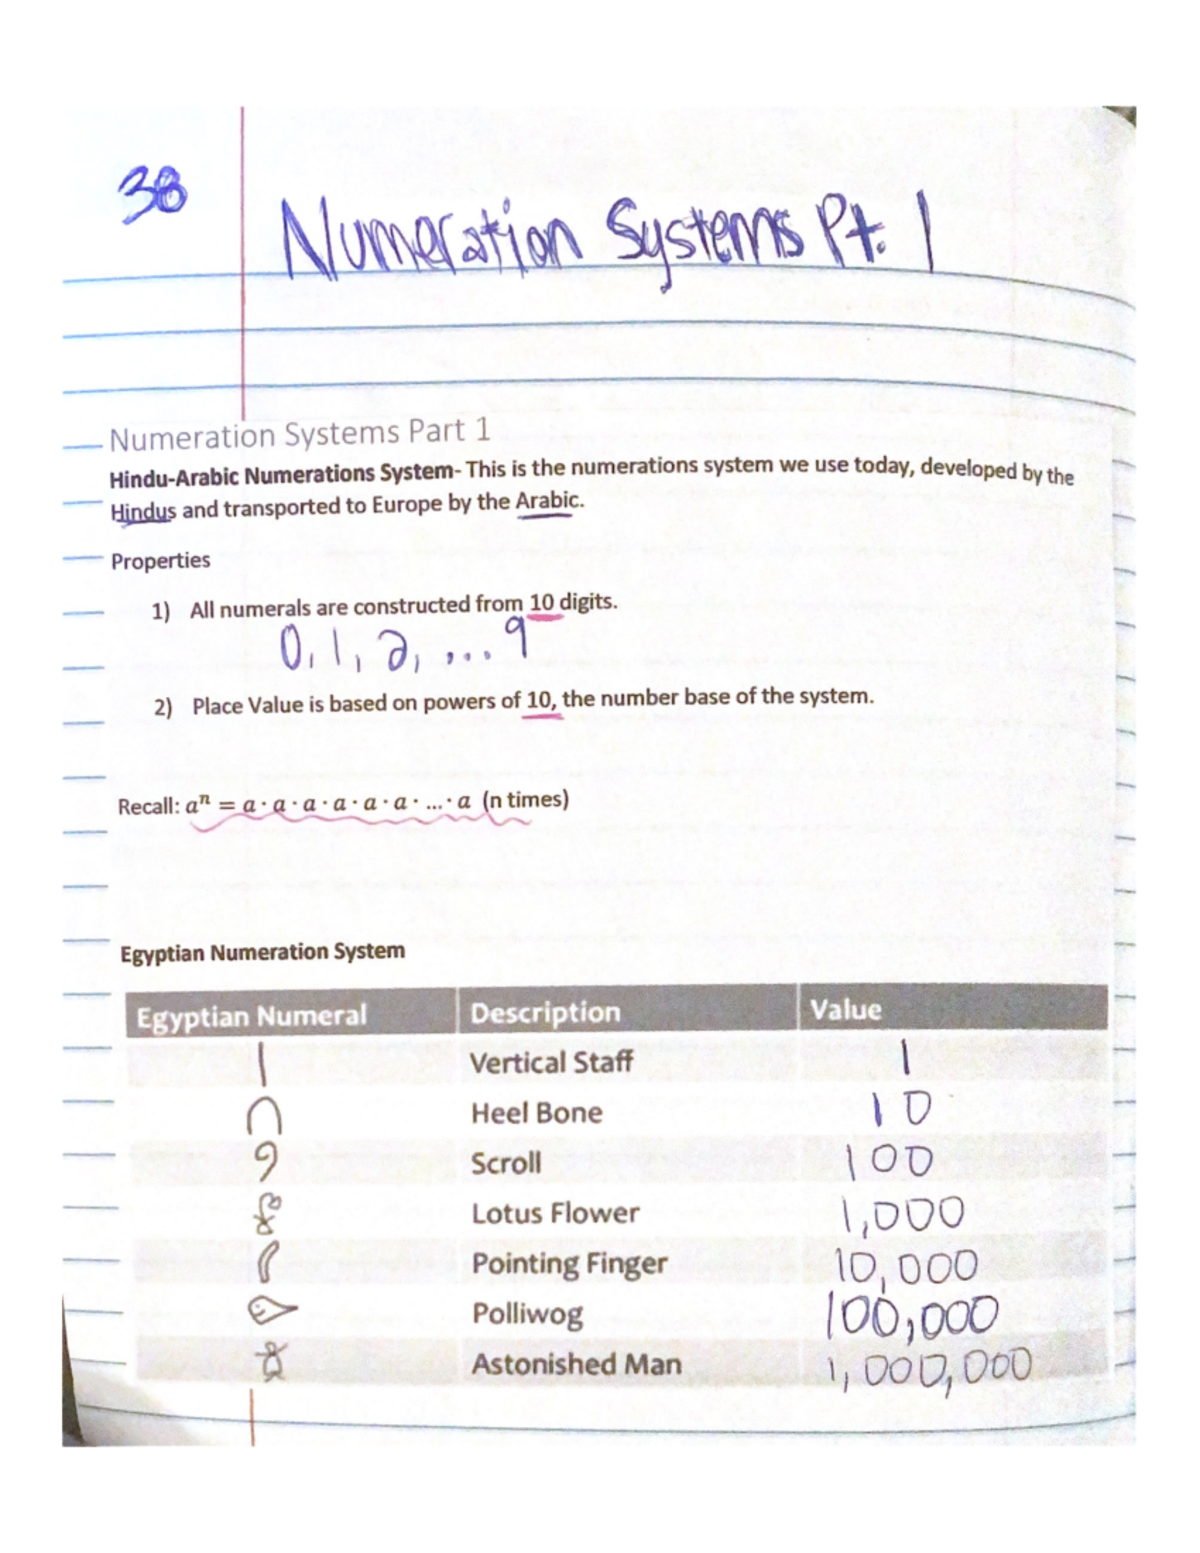 38
Numeration Systems Pt. 1
Numeration Systems Part 1
Hindu-Arabic Numerations System- This is the numerations system we use today, developed by the
Hindus and transported to Europe by the Arabic.
Properties
1) All numerals are constructed from 10 digits.
0, 1, 2, ... 9
2) Place Value is based on powers of 10, the number base of the system.
Recall: aⁿ = a · a · a · a · a · a · ... · a (n times)
Egyptian Numeration System
Egyptian Numeral Description Value
| Vertical Staff 1
∩ Heel Bone 10
Scroll 100
Lotus Flower 1,000
Pointing Finger 10,000
Polliwog 100,000
Astonished Man 1,000,000